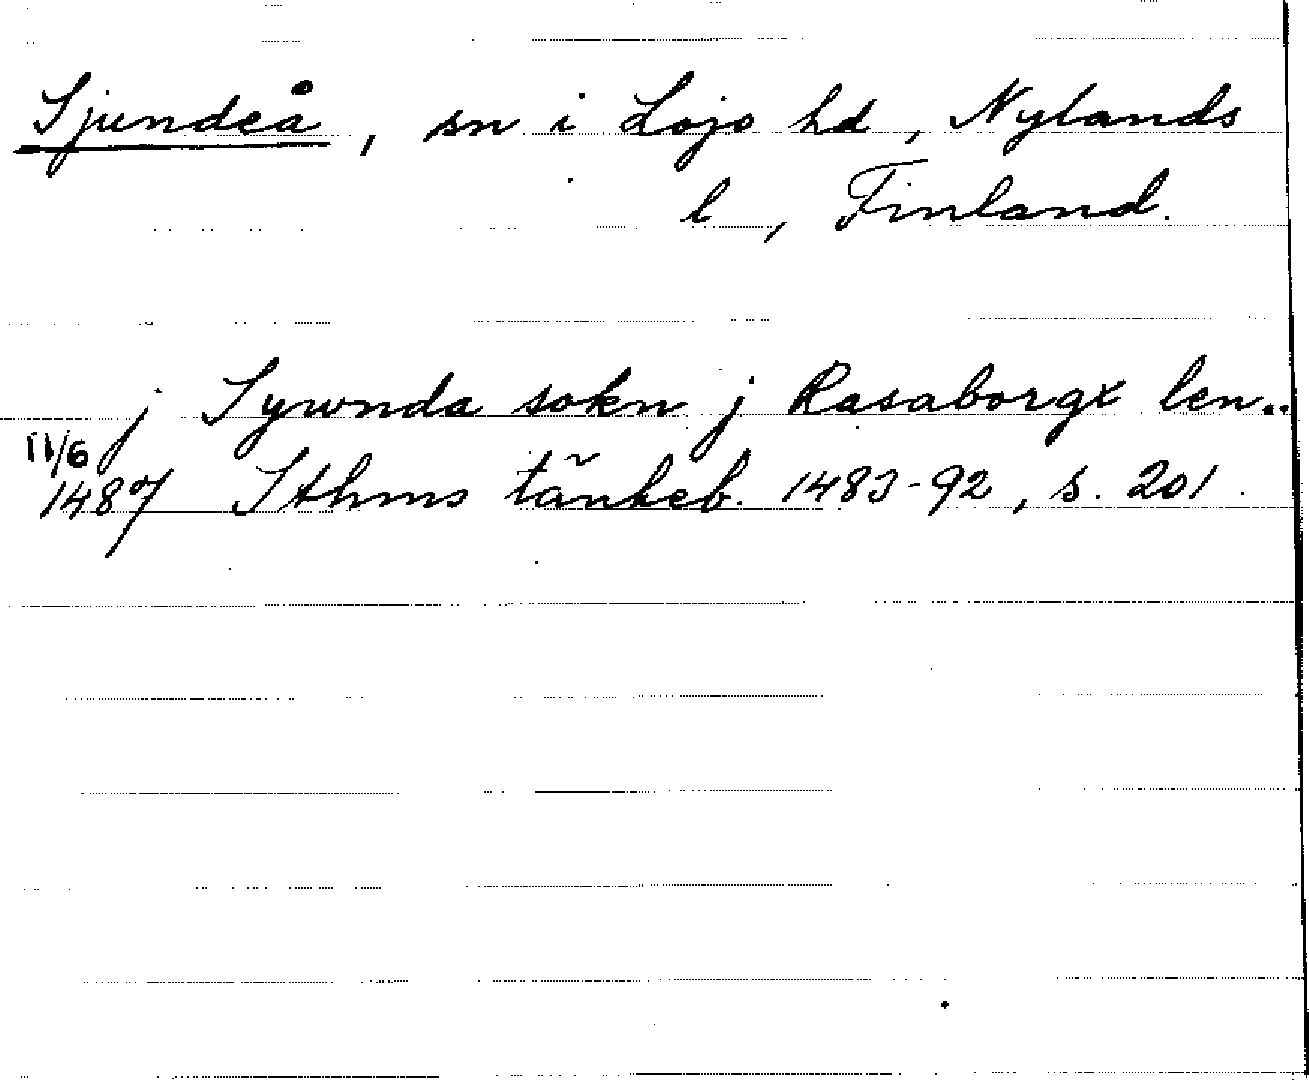 Sjundeå, sn i Lojo hd, Nylands
l, Finland.
j Sywnda sokn j Rasaborgx len..
11/6
1487 Sthms tänkeb. 1483-92, s. 201.